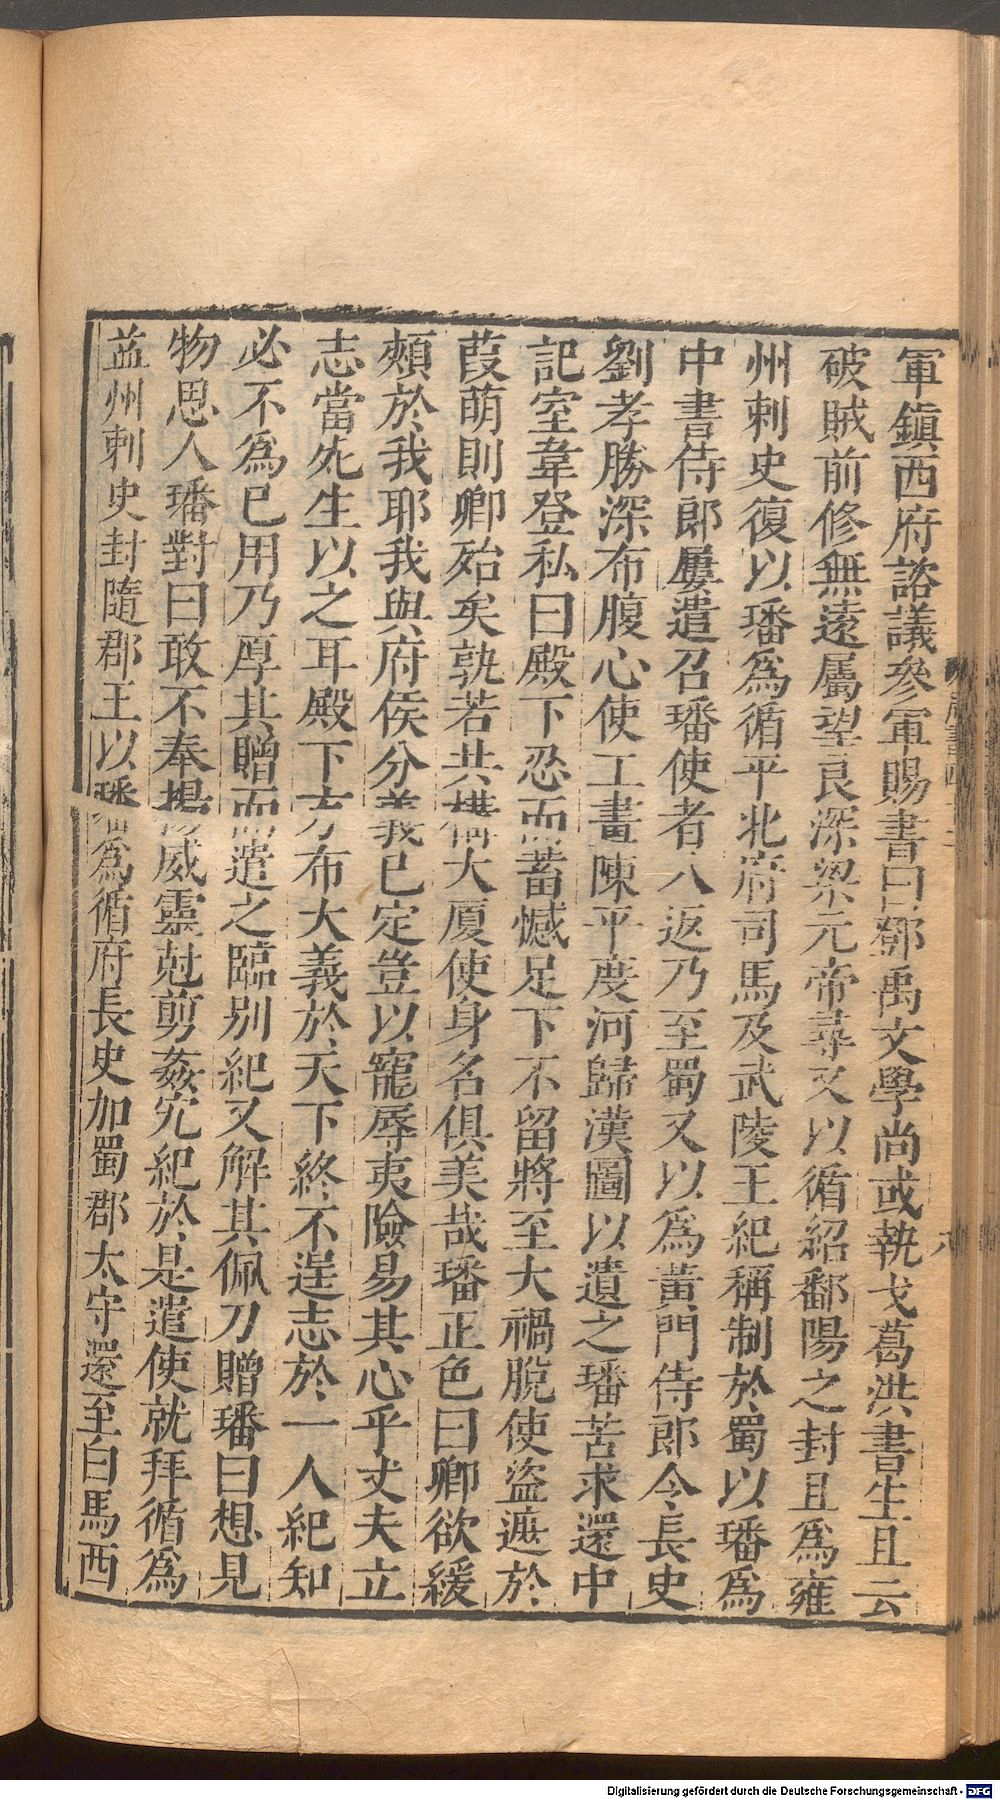 軍鎮西府諮議參軍賜書曰鄧禹文學尚或執戈葛洪書生且云
破賊前修無遠屬望良深梁元帝尋又以循紹鄱陽之封且爲雍
州刺史復以璠爲循平北府司馬及武陵王紀稱制於蜀以璠爲
中書侍郎屢遣召璠使者八返乃至蜀又以爲黃門侍郎令長史
劉孝勝深布腹心使工畫陳平度河歸漢圖以遺之璠苦求還中
記室韋登私曰殿下忍而蓄憾足下不留將至大禍脫使盜遮於
葭萌則卿殆矣孰若共構大厦使身名俱美哉璠正色曰卿欲緩
頰於我耶我與府侯分義已定豈以寵辱夷險易其心乎丈夫立
志當死生以之耳殿下方布大義於天下終不逞志於一人紀知
必不爲己用乃厚其贈而遣之臨別紀又解其佩刀贈璠曰想見
物思人璠對曰敢不奉揚威靈尅剪姦宄紀於是遣使就拜循爲
益州刺史封隨郡王以璠爲循府長史加蜀郡太守還至白馬西
八
Digitalisierung gefördert durch die Deutsche Forschungsgemeinschaft - DFG